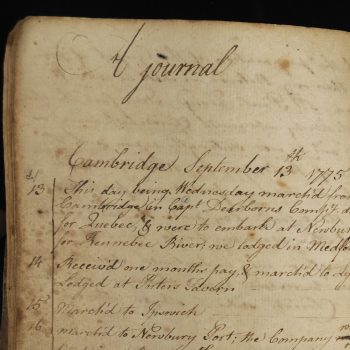 A journal
Cambridge September 13th 1775
13 This day being Wednesday march'd from
Cambridge in Capt Dearborns Comp'y
for Quebec, & were to embark at Newbury
for Kennebec River; we lodged in Medford
14 Receiv'd one months pay & march'd to
Lodged at Porters Tavern
15 March'd to Ipswich
16 march'd to Newbury Port; the Company